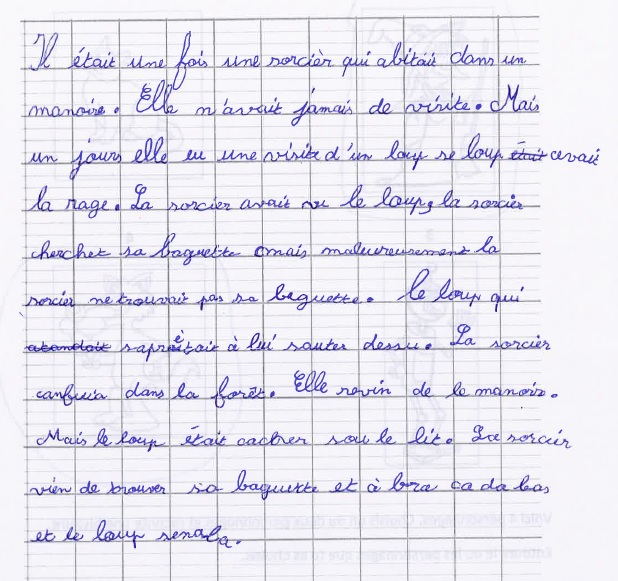 Il était une fois une sorcièr qui abitait dans un
manoire. Elle n'avait jamais de visite. Mais
un jours elle eu une visite d'un loup se loup était avait
la rage. La sorcier avait vu le loup, la sorcier
cherchet sa baguette mais malureusement la
sorcier ne trouvait pas sa baguette. le loup qui
atandait saprètait à lui sauter dessu. La sorcier
canfuia dans la forêt. Elle revin de le manoir.
Mais le loup était cacher sou le lit. La sorcier
vien de trouver sa baguette et à bra cadabas
et le loup senala.